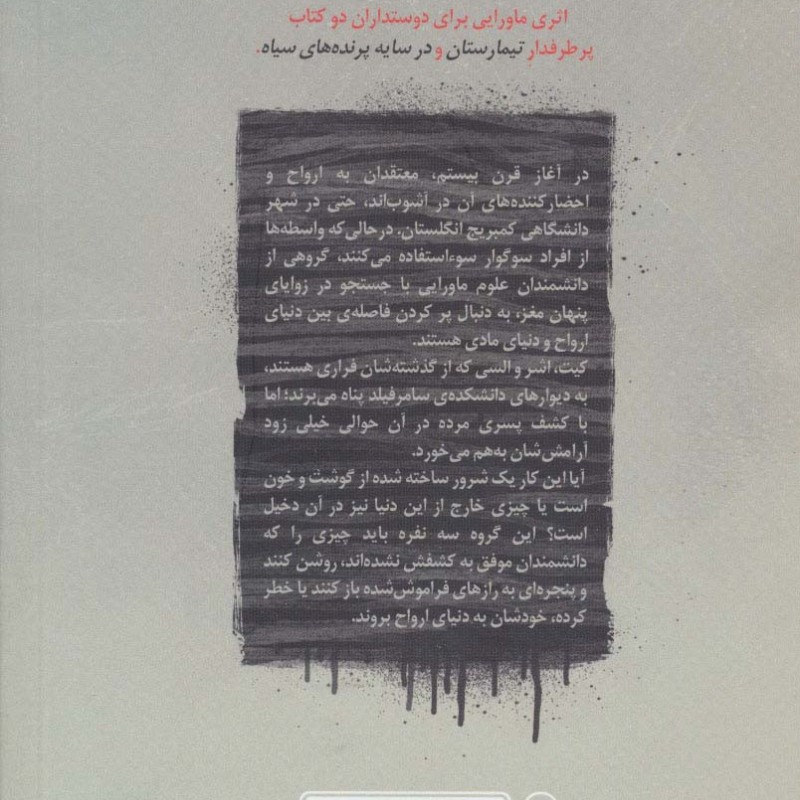 اثری ماورایی برای دوستداران دو کتاب
پرطرفدارِ تیمارستان و در سایه پرنده‌های سیاه.
در آغاز قرن بیستم، معتقدان به ارواح و
احضارکننده‌های آن در آشوب‌اند، حتی در شهر
دانشگاهی کمبریج انگلستان. درحالی‌که واسطه‌ها
از افراد سوگوار سوءاستفاده می‌کنند، گروهی از
دانشمندان علوم ماورایی با جستجو در زوایای
پنهان مغز، به دنبال پر کردن فاصله‌ی بین دنیای
ارواح و دنیای مادی هستند.
کیت، اشر و السی که از گذشته‌شان فراری هستند،
به دیوارهای دانشکده‌ی سامرفیلد پناه می‌برند؛ اما
با کشف پسری مرده در آن حوالی خیلی زود
آرامش‌شان به‌هم می‌خورد.
آیا این کار یک شرور ساخته شده از گوشت و خون
است یا چیزی خارج از این دنیا نیز در آن دخیل
است؟ این گروه سه نفره باید چیزی را که
دانشمندان موفق به کشفش نشده‌اند، روشن کنند
و پنجره‌ای به رازهای فراموش‌شده باز کنند یا خطر
کرده، خودشان به دنیای ارواح بروند.